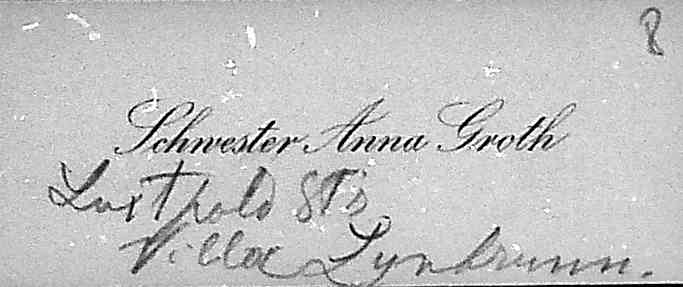 8
Schwester Anna Groth
Luitpold Str
Villa Lynbrunn.